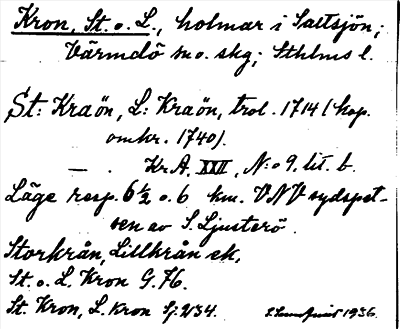 Kron, St. o. L., holmar i Saltsjön;
Värmdö sn o. skg; Sthlms l.
St: Kraön, L: Kraön, trol. 1714 (kop.
omkr. 1740).
— . Kr.A. XXII, N:o 9. lit. b.
Läge resp. 6½ o. 6 km. VNV sydspet-
sen av S. Ljusterö.
Storkrån, Lillkrån ek.
St. o. L. Kron G.76.
St. Kron, L. Kron Sj. 2134.
1936.